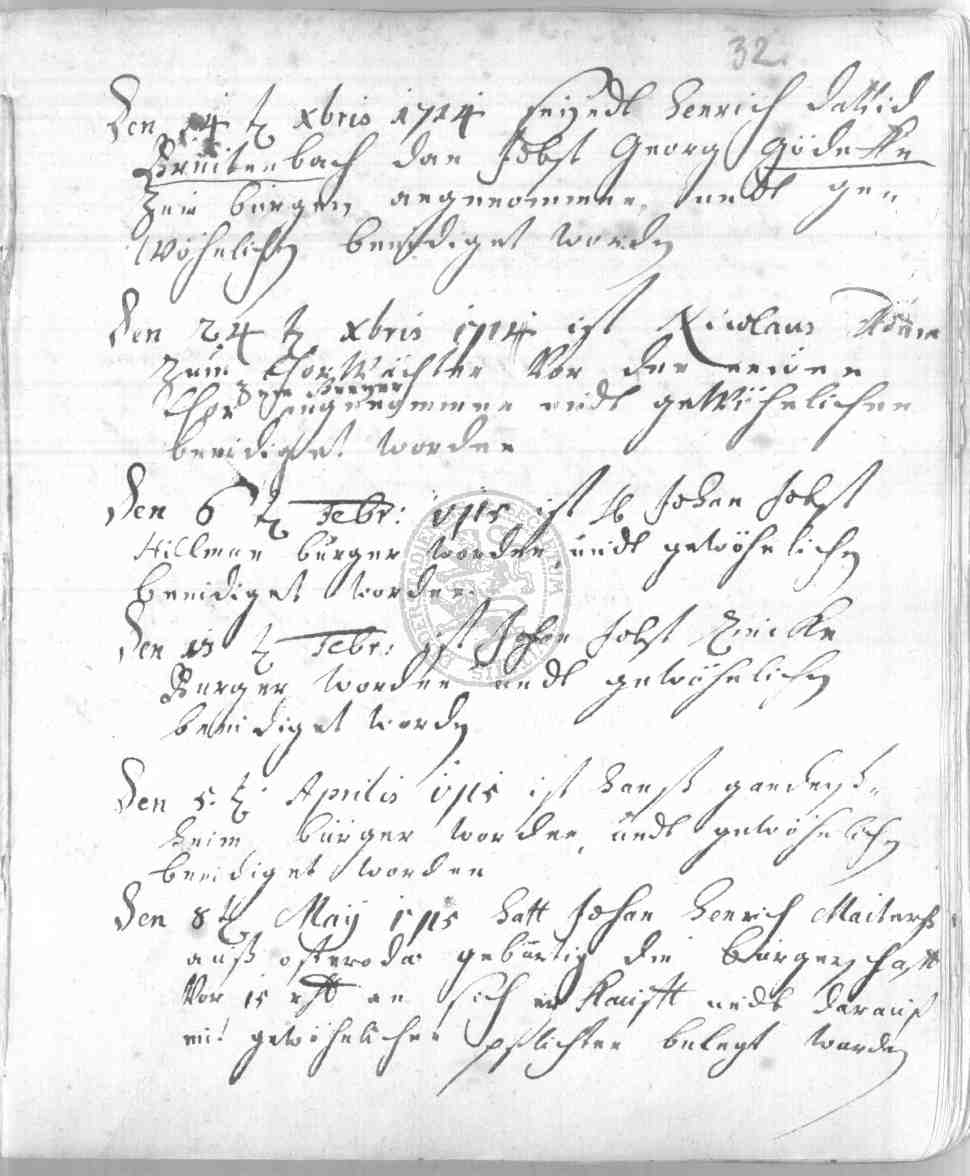 32.
Den 4 t xbris 1714 seyndt Henrich David
Breitenbach dan Jobst Georg Gödecke
zum bürger angenommen, undt ge-
wöhnlichen beeydiget worden
Den 24 t xbris 1714 ist Nicolaus
Zum ThorWächter Vor den
Thor Zum Burger angenommen undt gewöhnlichen
beeidiget worden
Den 6 t Febr: 1715 ist Johan Jobst
Hillman bürger worden, undt gewöhnlichen
beeidiget worden.
Den 13 t Febr: ist Johan Jobst
Burger worden undt gewöhnlichen
beeidiget worden
Den 5. t. Aprilis 1715 ist Hanß ganderß-
heim bürger worden, undt gewöhnlichen
beeidiget worden
Den 8 t May 1715 hatt Johan Henrich
auß osteroda gebürtig die Bürgerschafft
Vor 15 an sich erkaufft undt darauf
mit gewöhnlichen pflichten belegt worden
SIGILLUM